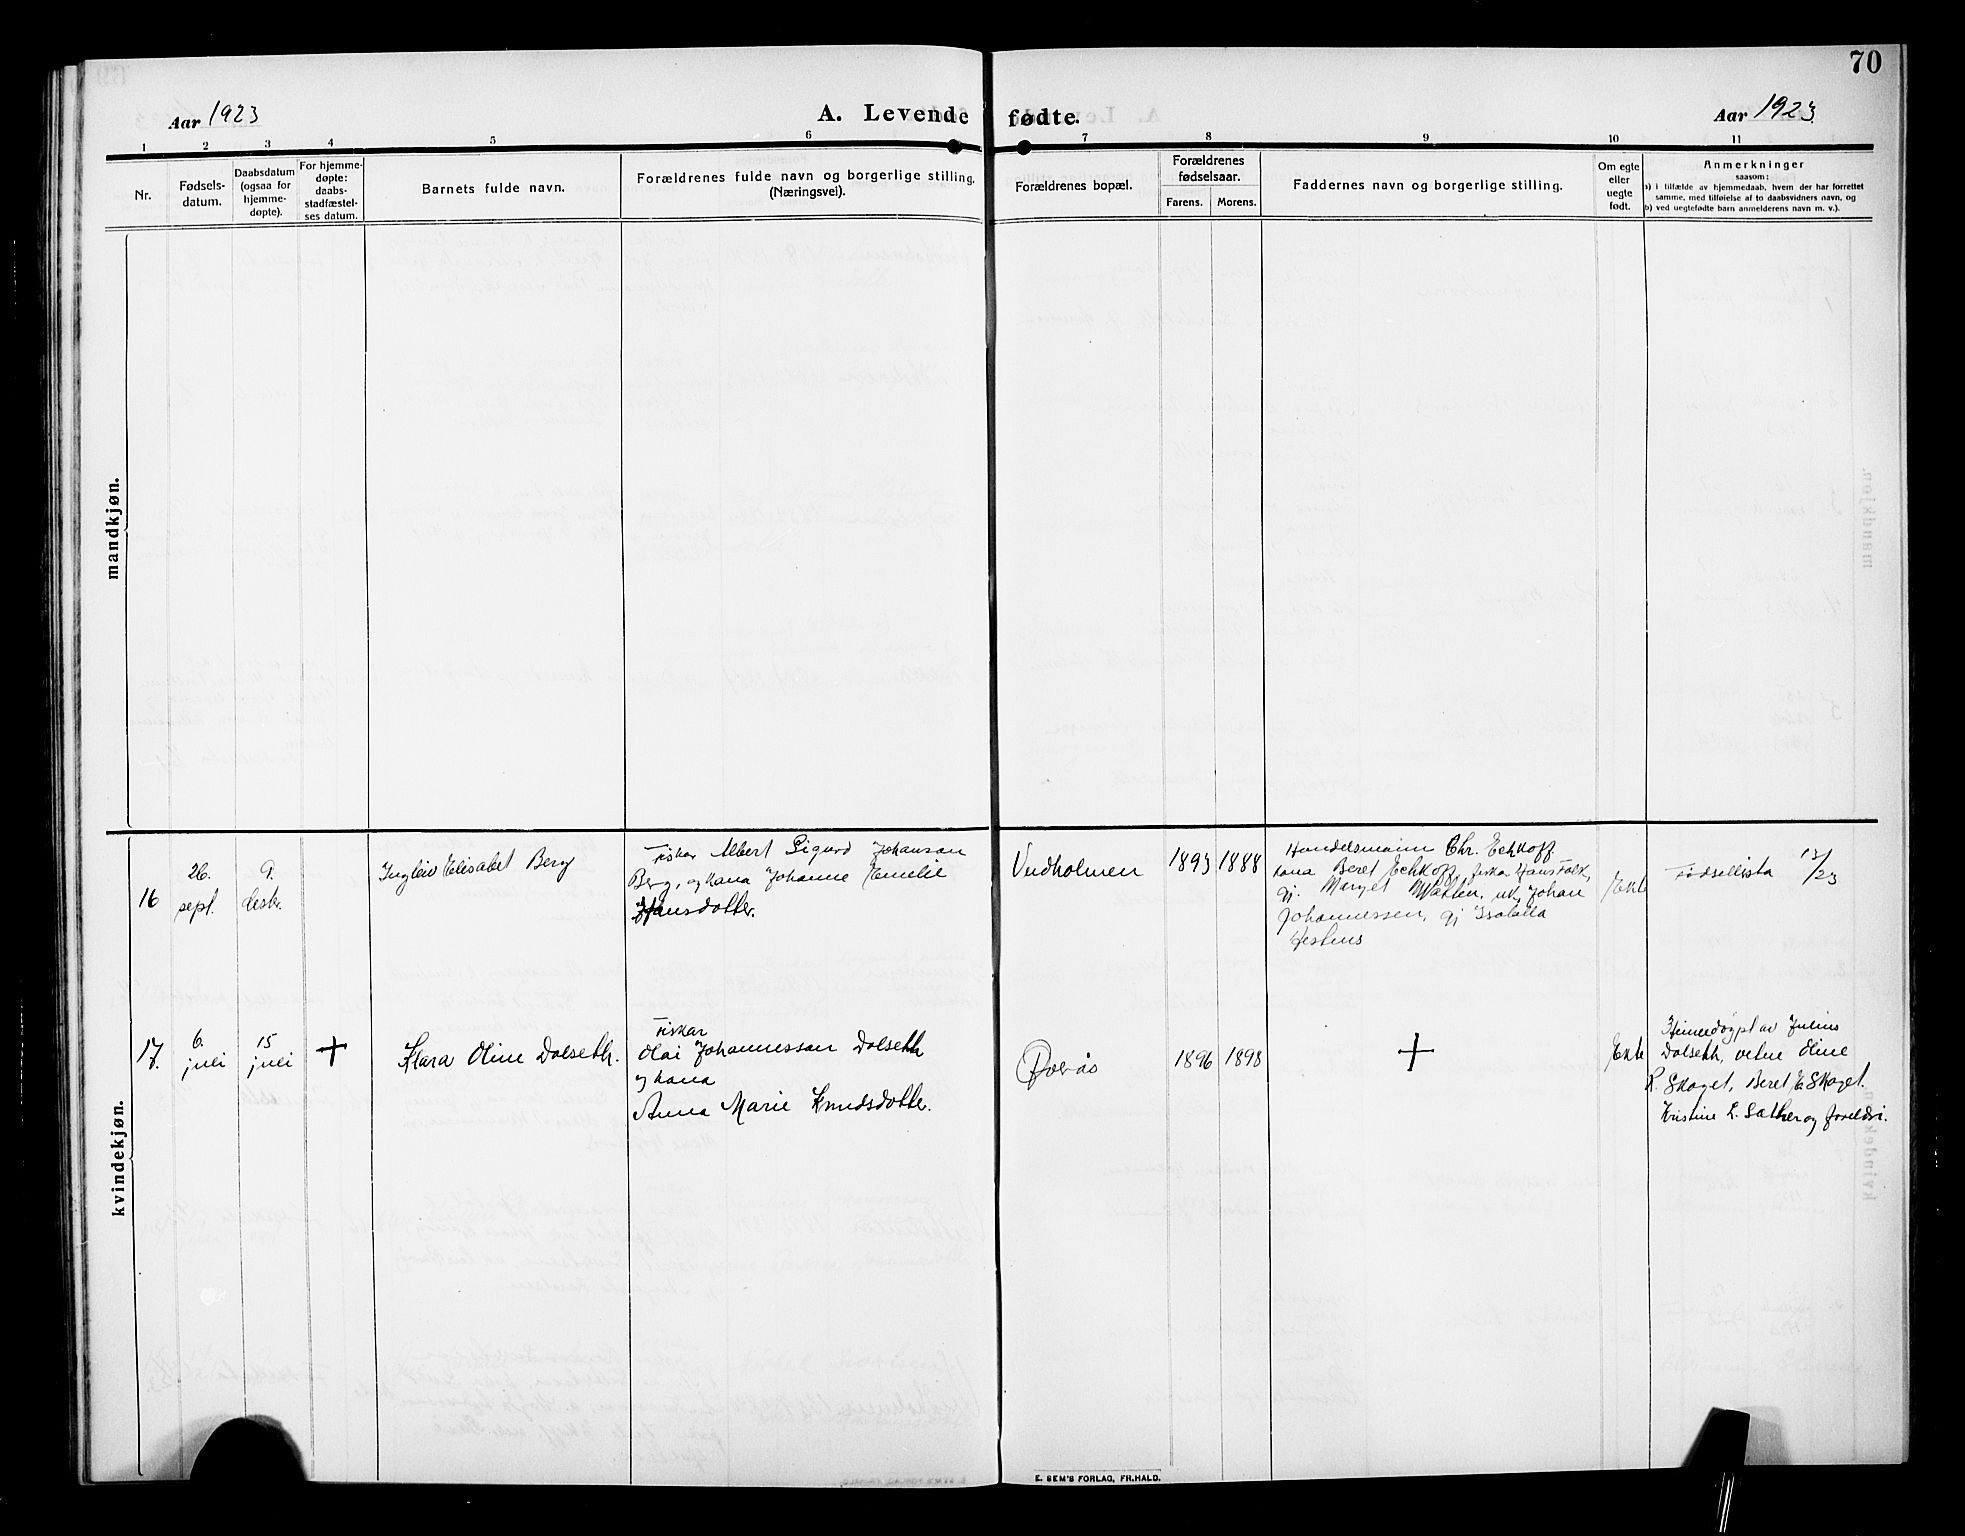 70
Aar 1923
A. Levende fødte.
Aar 1923
1 2 3 4 5 6 7 8 9 10 11
Nr.
Fødsels-
datum.
Daabsdatum
(ogsaa for
hjemme-
døpte).
For hjemme-
døpte:
daabs-
stadfæstel-
ses datum.
Barnets fulde navn.
Forældrenes fulde navn og borgerlige stilling.
(Næringsvei).
Forældrenes bopæl.
Forældrenes
fødselsaar.
Farens. Morens.
Faddernes navn og borgerlige stilling.
Om egte
eller
uegte
født.
Anmerkninger
saasom:
a) i tilfælde av hjemmedaab, hvem der har forrettet
samme, med tilføielse af to daabsvidners navn, og
b) ved uegtefødte barn anmelderens navn m. v.).
mandkjøn.
kvindekjøn.
16
26.
sept.
9.
desbr.
Ingleiv Elisabet Berg
Fiskar Albert Sigurd Johanson
Berg, og kona Johanne Emelie
Hansdotter.
Vedholmen
1893 1888
Handelsmann Chr. Eckhoff
kona Beret Eckhoff, fiskar Hans Falk,
gj. Merget Watten, uk. Johan
Johannessen, gj Isabella
Hestnes
Ekte
Fødsellista 13/23
17.
6.
juli
15
juli
+
Klara Oline Dalseth.
Fiskar
Olai Johannesson Dalseth
og kona
Anna Marie Knudsdotter.
1896 1898
+
Ekte
Heimedøypt av Julius
Dalseth, vitne Oline
R Skaget, Beret E Skaget.
Kristine L. Sather og foreldri.
E. SEM'S FORLAG, FR.HALD.